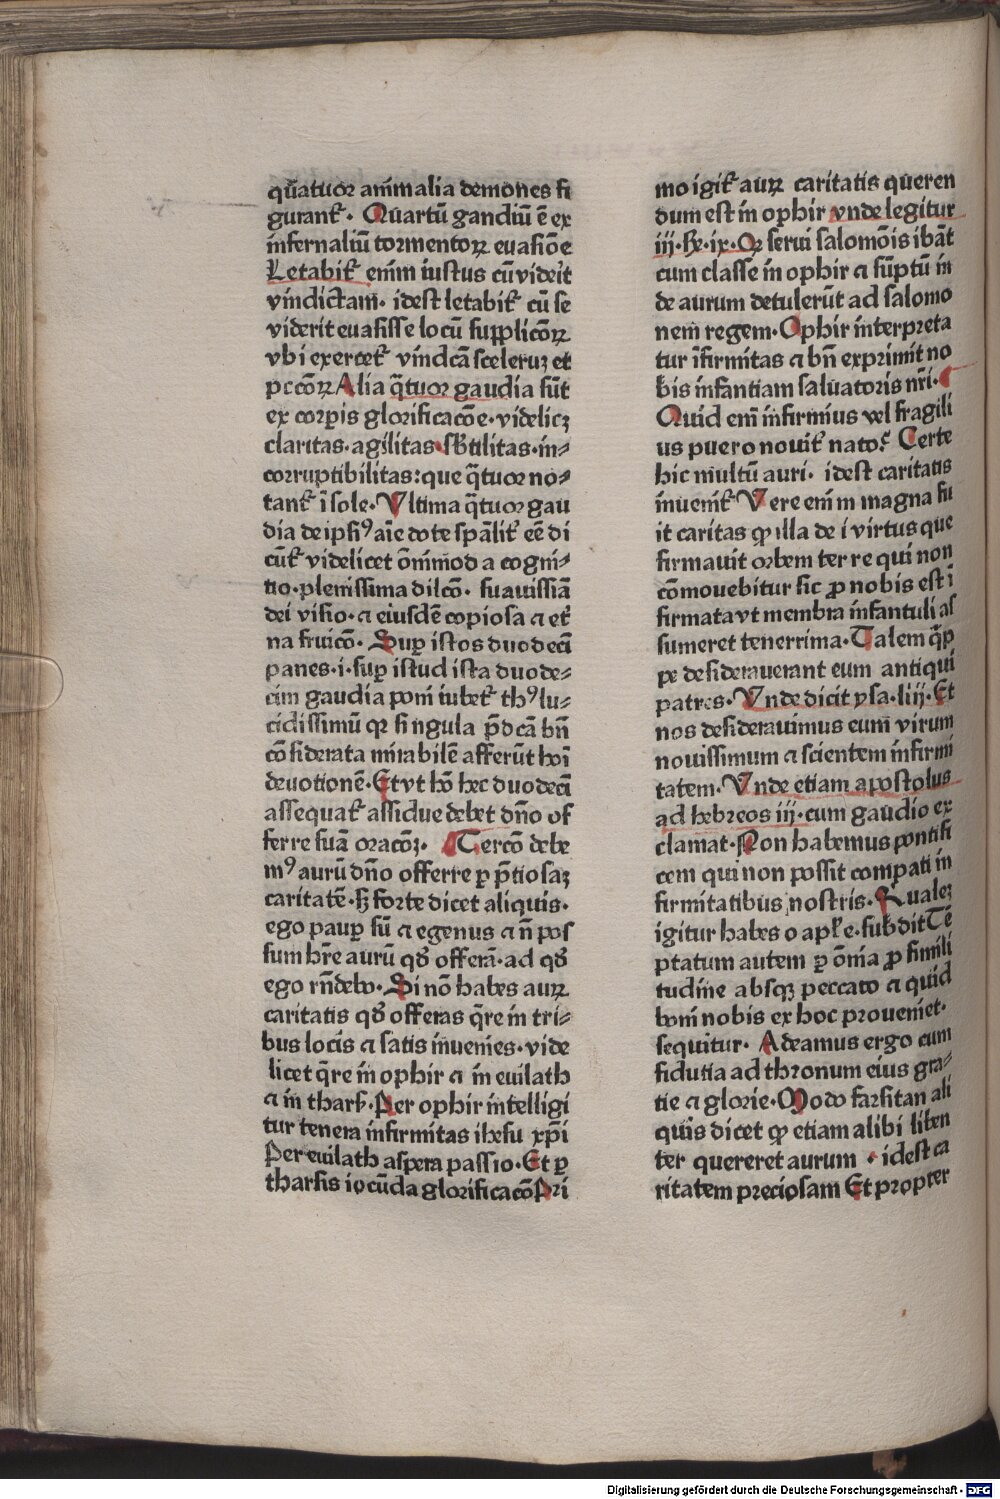 qũatuor animalia demones fi
gurant᷑. Quartũ gandiũ ẽ ex
infernaliũ tormentoꝝ euasiõe
Letabit᷑ enim iustus cũ videit
vindictam. idest letabit᷑ cũ se
viderit euasisse locũ supplicõꝝ
vbi exercet᷑ vindcã sceleruz et
pccõꝝ Alia q̃tuor gaudia sũt
ex corꝑis glorificacõe. videlicꝫ
claritas. agilitas. sb̃tilitas. in⸗
corruptibilitas: que q̃tuor no⸗
tant᷑ ĩ sole. Vltima q̃tuor gau
dia de ipsiꝰ aĩe dote spãlit᷑ eẽ di
cũt᷑ videlicet õnimoda cogni⸗
tio. plenissima dilcõ. suauissiã
dei visio. ⁊ eiusdẽ copiosa ⁊ et̾
na fruicõ. Suꝑ istos duodeci
panes. i. suꝑ istud ista duode⸗
cim gaudia poni iubet᷑ thꝰ lu⸗
cidissimũ qꝛ singula p̃dcã bñ
cõsiderata mirabilẽ afferũt hoĩ
deuotionẽ. Et vt hõ hec duodeci
assequat᷑ assidue debet dño of
ferre suã oracõꝫ. Tercõ debe
mꝰ aurũ dño offerre ꝑ p̃tiosaꝫ
caritatẽ. sꝫ forte dicet aliquis.
ego pauꝑ sũ ⁊ egenus ⁊ ñ pos
sum hr̃e aurũ qď offerã. ad qď
ego rñdebo. Si nõ habes auꝝ
caritatis qď offeras q̃re in tri⸗
bus locis ⁊ satis inuenies. vide
licet q̃re in ophir ⁊ in euilath
⁊ in thars̃. Per ophir intelligi
tur tenera infirmitas ihesu xp̃i
Per euilath aspera passio. Et ꝑ
tharsis iocũda glorificacõ Pri
mo igit᷑ auꝝ caritatis queren
dum est in ophir vnde legitur
iij. Rꝫ. ix. Qꝛ serui salomõis ibãt
cum classe in ophir ⁊ sũptũ in
de aurum detulerũt ad salomo
nem regem. Ophir interpreta
tur ĩfirmitas ⁊ bñ exprimit no
bis infantiam saluatoris nr̃i.
Quid em̃ infirmius vel fragili
us puero nouit᷑ nato? Certe
hic multũ auri. idest caritatis
inuenit᷑ Vere em̃ in magna fu
it caritas ꝙ illa dei virtus que
firmauit orbem terre qui non
cõmouebitur sic ꝓ nobis est ĩ
firmata vt membra infantuli as
sumeret tenerrima. Talem q̃ꝑ
pe desiderauerant eum antiqui
patres. Vnde dicit ysa. liij. Et
nos desiderauimus eum virum
nouissimum ⁊ scientem infirmi
tatem. Vnde etiam apostolus
ad hebreos iij. cum gaudio ex
clamat. Non habemus pontifi
cem qui non possit compati in
firmitatibus nostris. Qualeꝫ
igitur habes o apl̃e. subdit Tẽ
ptatum autem ꝑ om̃ia ꝓ simili
tudine absqꝫ peccato ⁊ quid
boni nobis ex hoc proueniet.
sequitur. Adeamus ergo cum
fidutia ad thronum eius gra⸗
tie ⁊ glorie. Modo farsitan ali
quis dicet ꝙ etiam alibi liben
ter quereret aurum . idest ca
ritatem preciosam Et propter
Digitalisierung gefördert durch die Deutsche Forschungsgemeinschaft - DFG